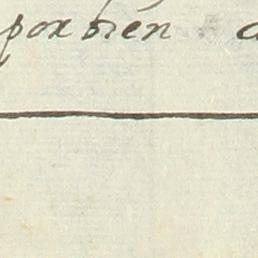 por bien